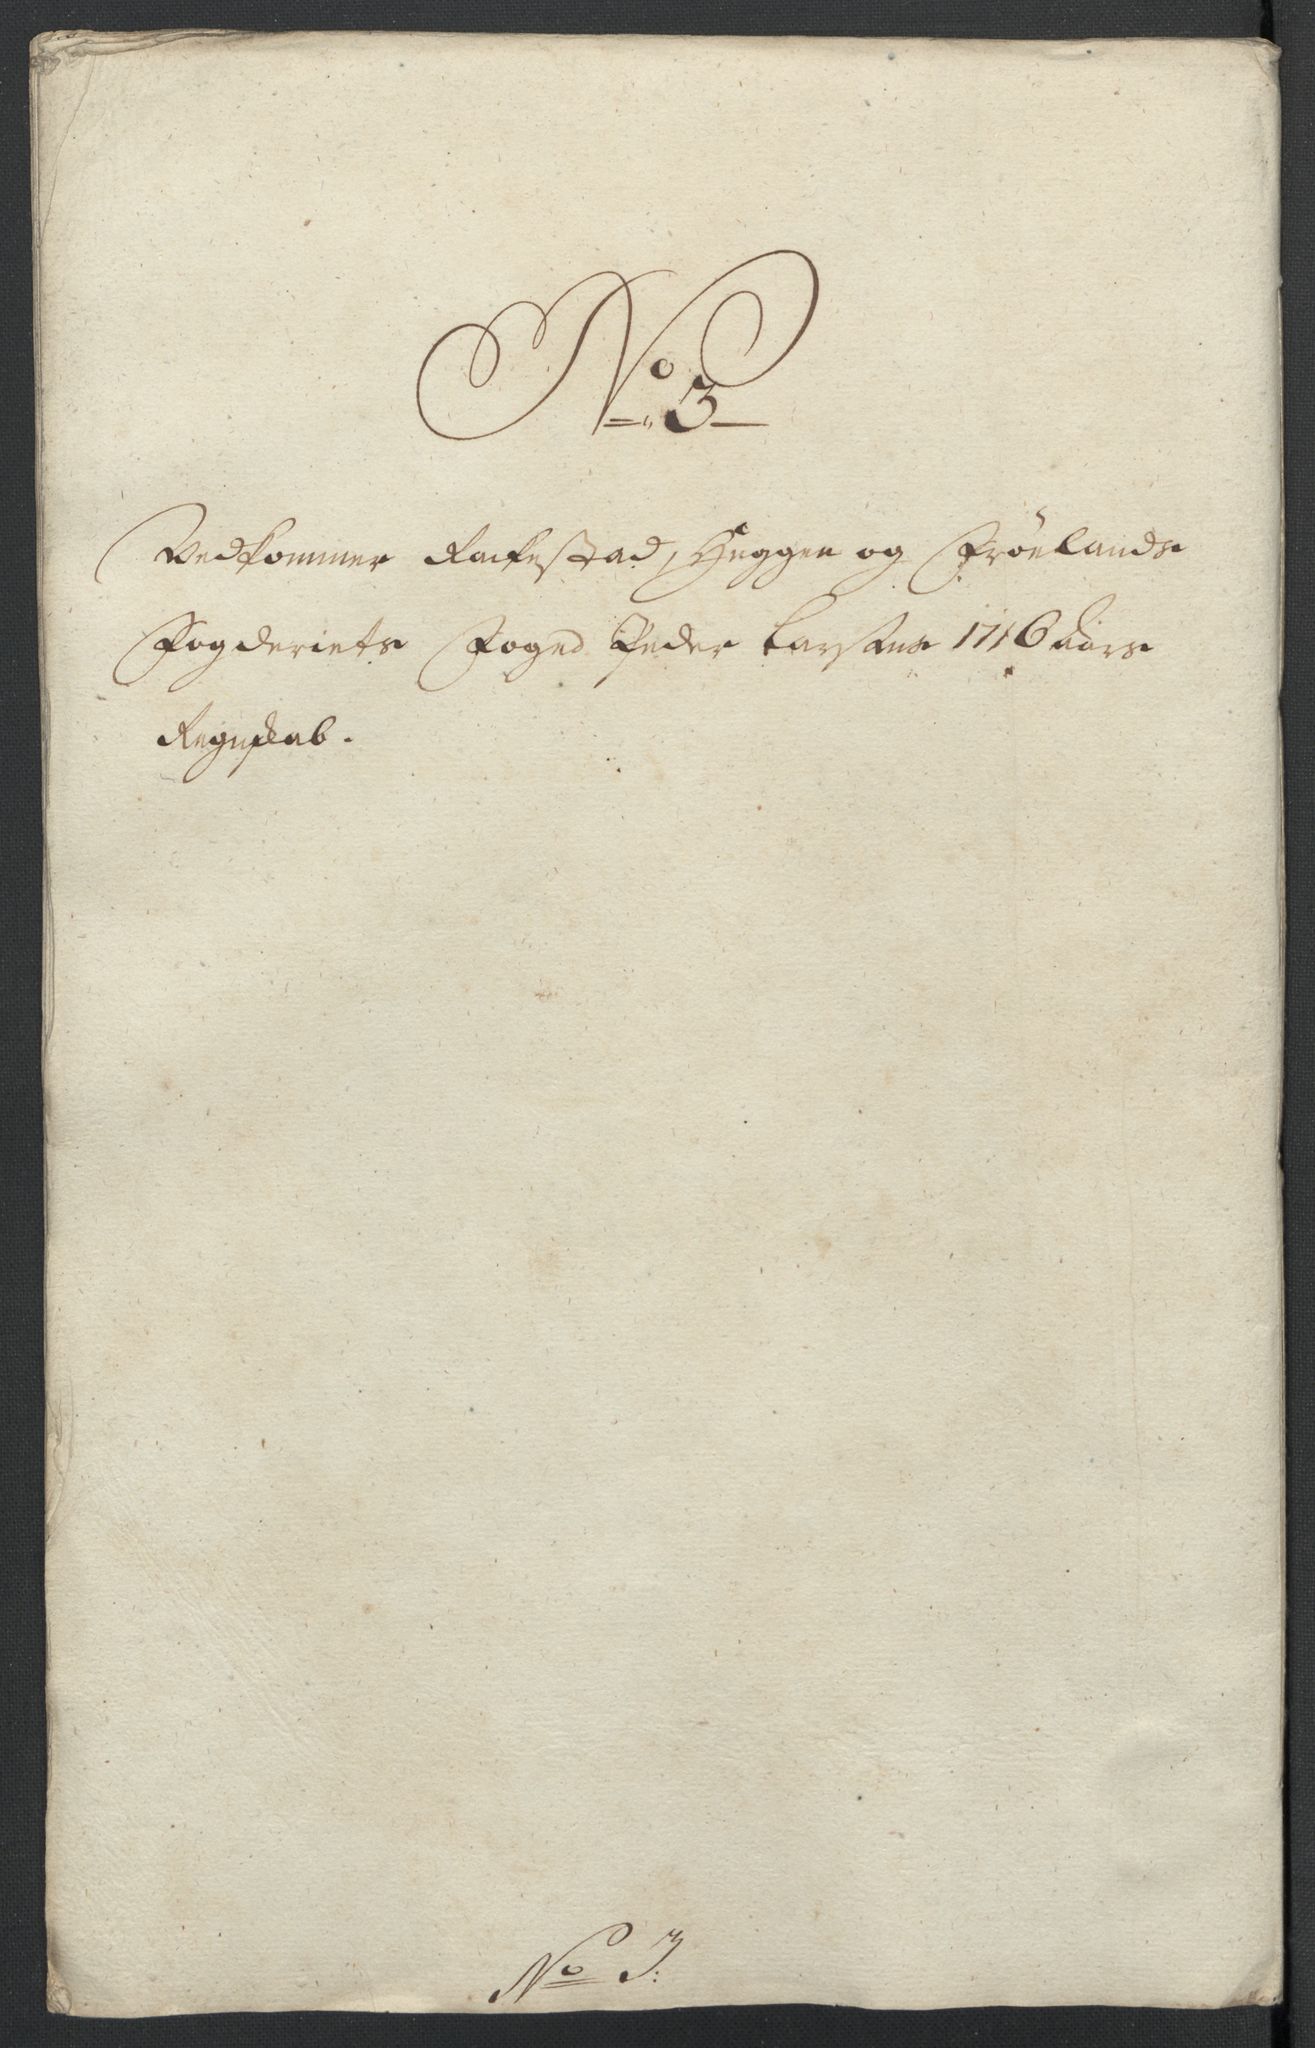 No 3
Vedkommer Rakestad, Heggen og Frölands
Fogderiets Foged Peder Larsens 1716 Aars
Regnskab.
No 3